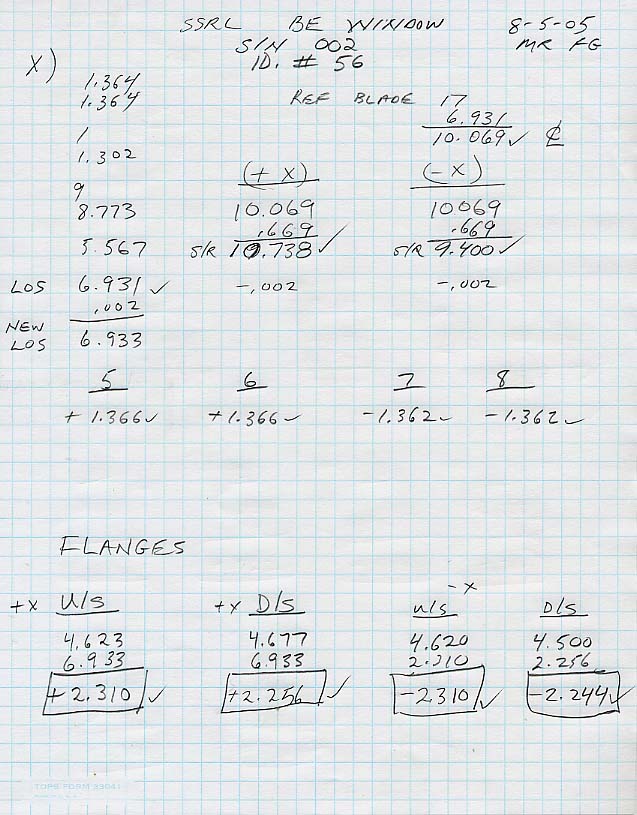 SSRL BE WINDOW 8-5-05
S/N 002 MR FG
X) ID. # 56
1.364
1.364
REF BLADE 17
6.931
10.069✓ ℄
1
1.302
9
8.773
5.567
LOS 6.931 ✓
.002
NEW LOS 6.933
(+ X)
10.069
.669
S/R 10.738 ✓
-.002
(- X)
10069
.669
S/R 9.400 ✓
-.002
5 6 7 8
+ 1.366✓ +1.366✓ -1.362✓ -1.362✓
FLANGES
+x U/S
4.623
6.933
+2.310 ✓
+x D/S
4.677
6.933
+2.256 ✓
-x
U/S
4.620
2.310
-2310 ✓
D/S
4.500
2.256
-2.244 ✓
TOPS FORM 33041